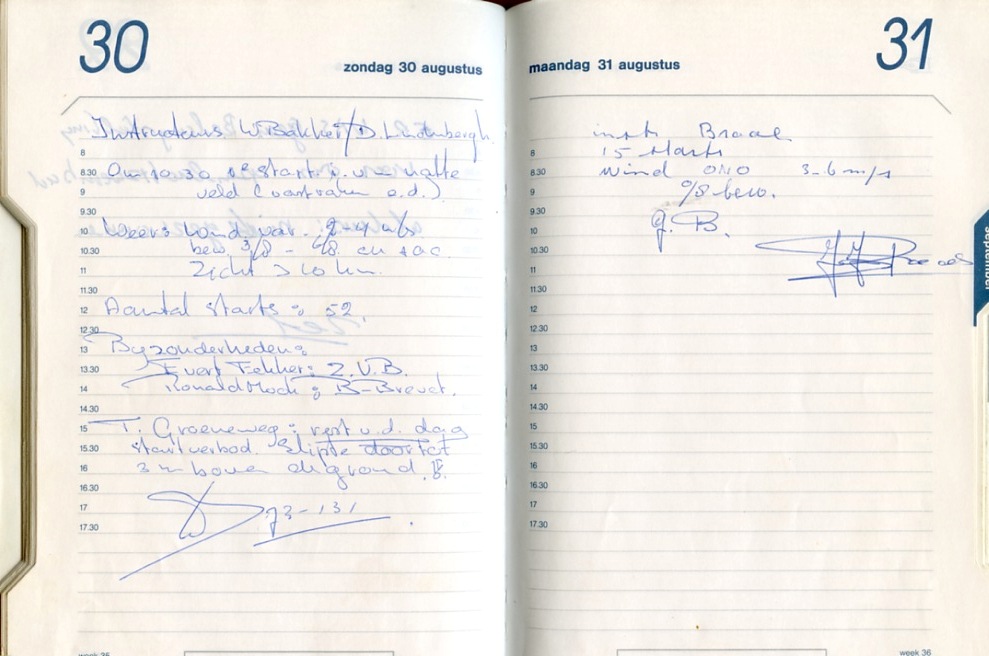 30
zondag 30 augustus
Instructeurs W. Bakker / D. Lindenbergh
8
8.30
Om 10.30 1e start i.v.m. natte
9
veld (voorraam e.d.)
9.30
10
Weer: wind var. 2-4 m/s
10.30
bew. 3/8 - 4/8 cu + ac
11
Zicht > 10 km.
11.30
12
Aantal starts: 52.
12.30
13
Byzonderheden:
13.30
Evert Fekker: Z.V.B.
14
Ronald Mock: B-Brevet.
14.30
15
T. Groeneweg: rest v.d. dag
15.30
startverbod. Slipte door tot
16
3 m boven de grond.
16.30
17
73-131
17.30
week 35
maandag 31 augustus
31
instr Braae
8
15 starts
8.30
Wind ONO 3-6 m/s
9
0/8 bew.
9.30
10
G.B.
10.30
11
11.30
12
12.30
13
13.30
14
14.30
15
15.30
16
16.30
17
17.30
week 36
september